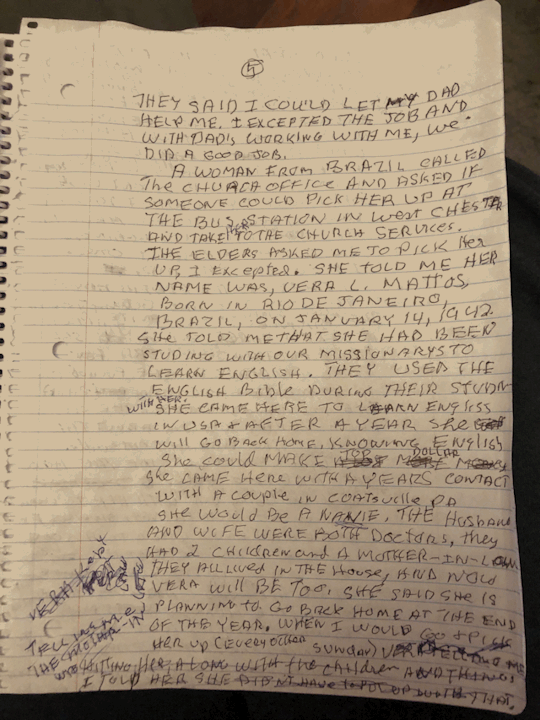 5
THEY SAID I COULD LET MY DAD
HELP ME. I EXCEPTED THE JOB AND
WITH DAD'S WORKING WITH ME, WE
DID A GOOD JOB.
A WOMAN FROM BRAZIL CALLED
THE CHURCH OFFICE AND ASKED IF
SOMEONE COULD PICK HER UP AT
THE BUS STATION IN WEST CHESTER
AND TAKE HER TO THE CHURCH SERVICES.
THE ELDERS ASKED ME TO PICK HER
UP, I EXCEPTED. SHE TOLD ME HER
NAME WAS, VERA L. MATTOS,
BORN IN RIO DE JANEIRO,
BRAZIL, ON JANUARY 14, 1942.
SHE TOLD ME THAT SHE HAD BEEN
STUDING WITH OUR MISSIONARYS TO
LEARN ENGLISH. THEY USED THE
ENGLISH BIBLE DURING THEIR STUDIN
WITH HER.
SHE CAME HERE TO LEARN ENGLISS
IN USA & AFTER A YEAR SHE
WILL GO BACK HOME, KNOWING ENGLISH
SHE COULD MAKE TOP DOLLAR
SHE CAME HERE WITH A YEARS CONTACT
WITH A COUPLE IN COATSVILLE, PA
SHE WOULD BE A NANIE. THE HUSBAND
AND WIFE WERE BOTH DOCTORS, THEY
HAD 2 CHILDREN AND A MOTHER-IN-LAW
THEY ALL LIVED IN THE HOUSE, AND NOW
VERA WILL BE TOO. SHE SAID SHE IS
PLANNING TO GO BACK HOME AT THE END
OF THE YEAR. WHEN I WOULD GO & PICK
HER UP (EVERY OTHER SUNDAY)
VERA KEPT
TELLING ME
THE MOTHER-IN
WAS HITTING HER, ALONG WITH THE CHILDREN AND THINGS
I TOLD HER SHE DIDN'T HAVE TO PUT UP WITH THAT.